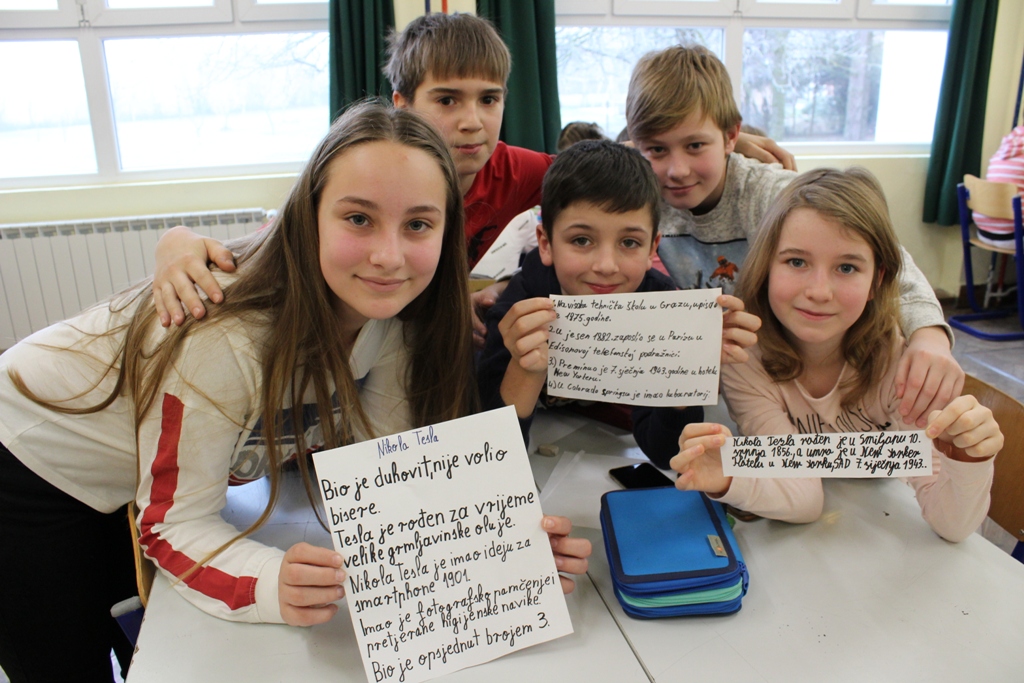 Nikola Tesla
Bio je duhovit, nije volio
bisere.
Tesla je rođen za vrijeme
velike grmljavinske oluje.
Nikola Tesla je imao ideju za
smartphone 1901.
Imao je fotografsko pamčenje i
pretjerane higijenske navike.
Bio je opsjednut brojem 3.
visoka tehnička školu u Grazu, upisa
1875. godine.
2. U jesen 1882. zaposlio se u Parizu u
Edisonovoj telefonskoj podružnici
3) Preminuo je 7. siječnja 1943. godine u hotelu
New Yorker.
4) U Colorado Springsu je imao laboratorij.
Nikola Tesla rođen je u Smiljanu 10.
srpnja 1856., a umro je u New Yorker
Hotelu u New Yorku, SAD 7. siječnja 1943..